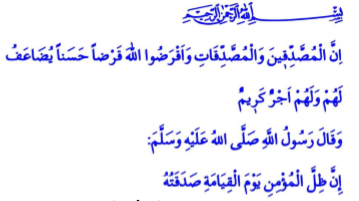 بِسْمِ اللهِ الرَّحْمٰنِ الرَّحِيمِ
اِنَّ الْمُصَّدِّقٖينَ وَالْمُصَّدِّقَاتِ وَاَقْرَضُوا اللهَ قَرْضاً حَسَناً يُضَاعَفُ
لَهُمْ وَلَهُمْ اَجْرٌ كَرٖيمٌ
وَقَالَ رَسُولُ اللَّهِ صَلَّى اللهُ عَلَيْهِ وَسَلَّمَ:
إِنَّ ظِلَّ الْمُؤْمِنِ يَوْمَ الْقِيَامَةِ صَدَقَتُهُ